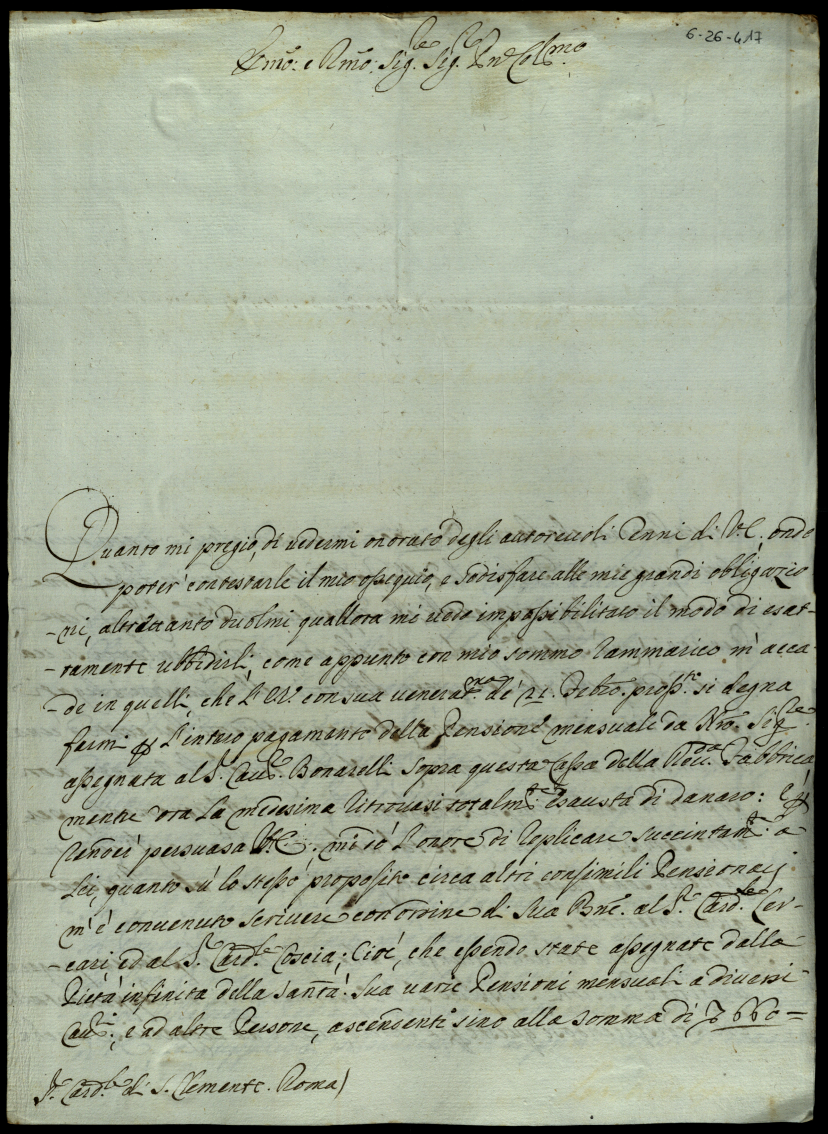 6-26-417
Emo: e Rmo: Sig.re Sig.re Pne Colmo
Quanto mi pregio, di vedermi onorato degli autorevoli Cenni di V.E. onde
poter contestarle il mio ossequio, e sodisfare alle mie grandi obligazio
-ni, altrettanto duolmi quallora mi vedo impossibilitato il modo di esat-
-tamente ubbidirli, come appunto con mio sommo rammarico m'acca-
-de in quelli, che l'E.V. con sua venerat.ma de' 21. Febro. pross.te si degna
farmi p l'intero pagamento della Pensione mensuale da Nro. Sig.re
assegnata al S.r Cav.re Bonarelli sopra questa Cassa della Rda. Fabbrica
mentre ora la medesima ritrovasi totalm.te esausta di danaro: E p
renderne persuasa V.E., mi dò l'onore di replicare succintam.te a
Lei, quanto sù lo stesso proposito circa altri consimili Pensionarj
m'è convenuto scrivere con ordine di Sua Bne. al S.r Card.le Cer-
-cari, ed al S.r Card.le Coscia; Cioè, che essendo state assegnate dalla
Pietà infinita della Santà. Sua varie Pensioni mensuali a diversi
Cav.ri, e ad altre Persone, ascendenti sino alla somma di 660=
S.r Card.le di S. Clemente. Roma)